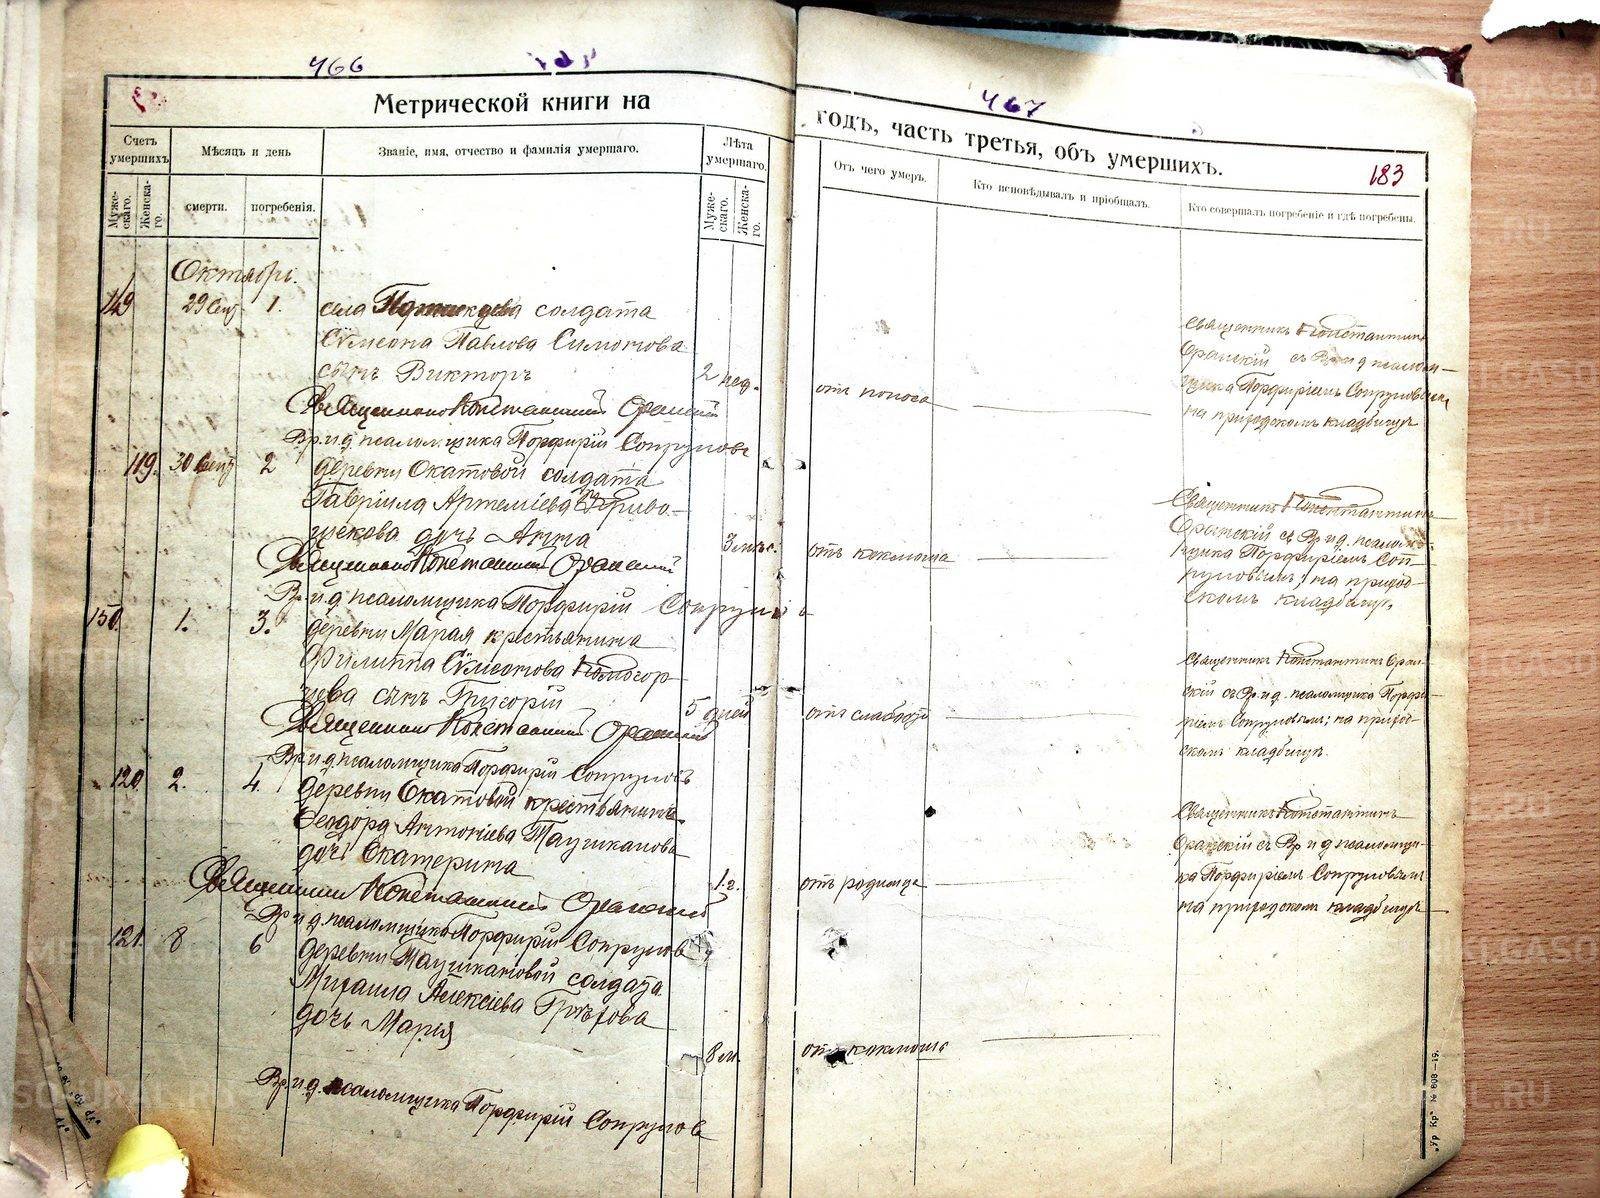 466
467
Метрической книги на
годъ, часть третья, объ умершихъ.
183
Счетъ умершихъ.
Мѣсяцъ и день
Званіе, имя, отчество и фамилія умершаго.
Лѣта умершаго.
Отъ чего умеръ.
Кто исповѣдывалъ и пріобщалъ.
Кто совершалъ погребеніе и гдѣ погребены.
Муже-скаго.
Женска-го.
смерти.
погребенія.
Муже-скаго.
Женска-го.
Октябрь.
149 29 Сент 1. села солдата
Сѵмеона Павлова Симонова
сынъ Викторъ
2 нед. отъ поноса
Священникъ Константинъ
Оранскій съ Вр и д псалом-
щика Порфиріемъ Сопруновымъ
на приходскомъ кладбищѣ
Священникъ Константинъ Оранскій
Вр. и. д. псаломщика Порфирій Сопруновъ
119. 30 Сент 2 деревни Окатовой солдата
Гавріила Артеміева
дочь Анна
3 мѣс. отъ коклюша
Священникъ Константинъ
Оранскій съ Вр и д. псалом-
щика Порфиріемъ Соп-
руновымъ; на приход-
скомъ кладбищѣ
Священникъ Константинъ Оранскій
Вр. и д. псаломщика Порфирій Сопруновъ
150. 1. 3. деревни Марая крестьянина
Филиппа Сѵмеонова
сынъ Григорій
5 дней отъ слабости
Священникъ Константинъ Оран-
скій съ Вр. и д. псаломщика Порфи-
ріемъ Сопруновымъ; на приход-
скомъ кладбищѣ.
Священникъ Константинъ Оранскій
Вр. и д. псаломщика Порфирій Сопруновъ
120 2. 4. деревни Окатовой крестьянина
Ѳеодора Антоніева Таушканова
дочь Екатерина
1 г. отъ родимца
Священникъ Константинъ
Оранскій съ Вр и д псаломщи-
ка Порфиріемъ Сопруновымъ
на приходском кладбищѣ
Священникъ Константинъ Оранскій
Вр и д псаломщика Порфирій Сопруновъ
121. 8 6 деревни Таушкановой солдата
Михаила Алексіева
дочь Марія
8 м. отъ коклюша
Вр. и д. псаломщика Порфирій Сопруновъ
„Ур Кр“ № 808—19.